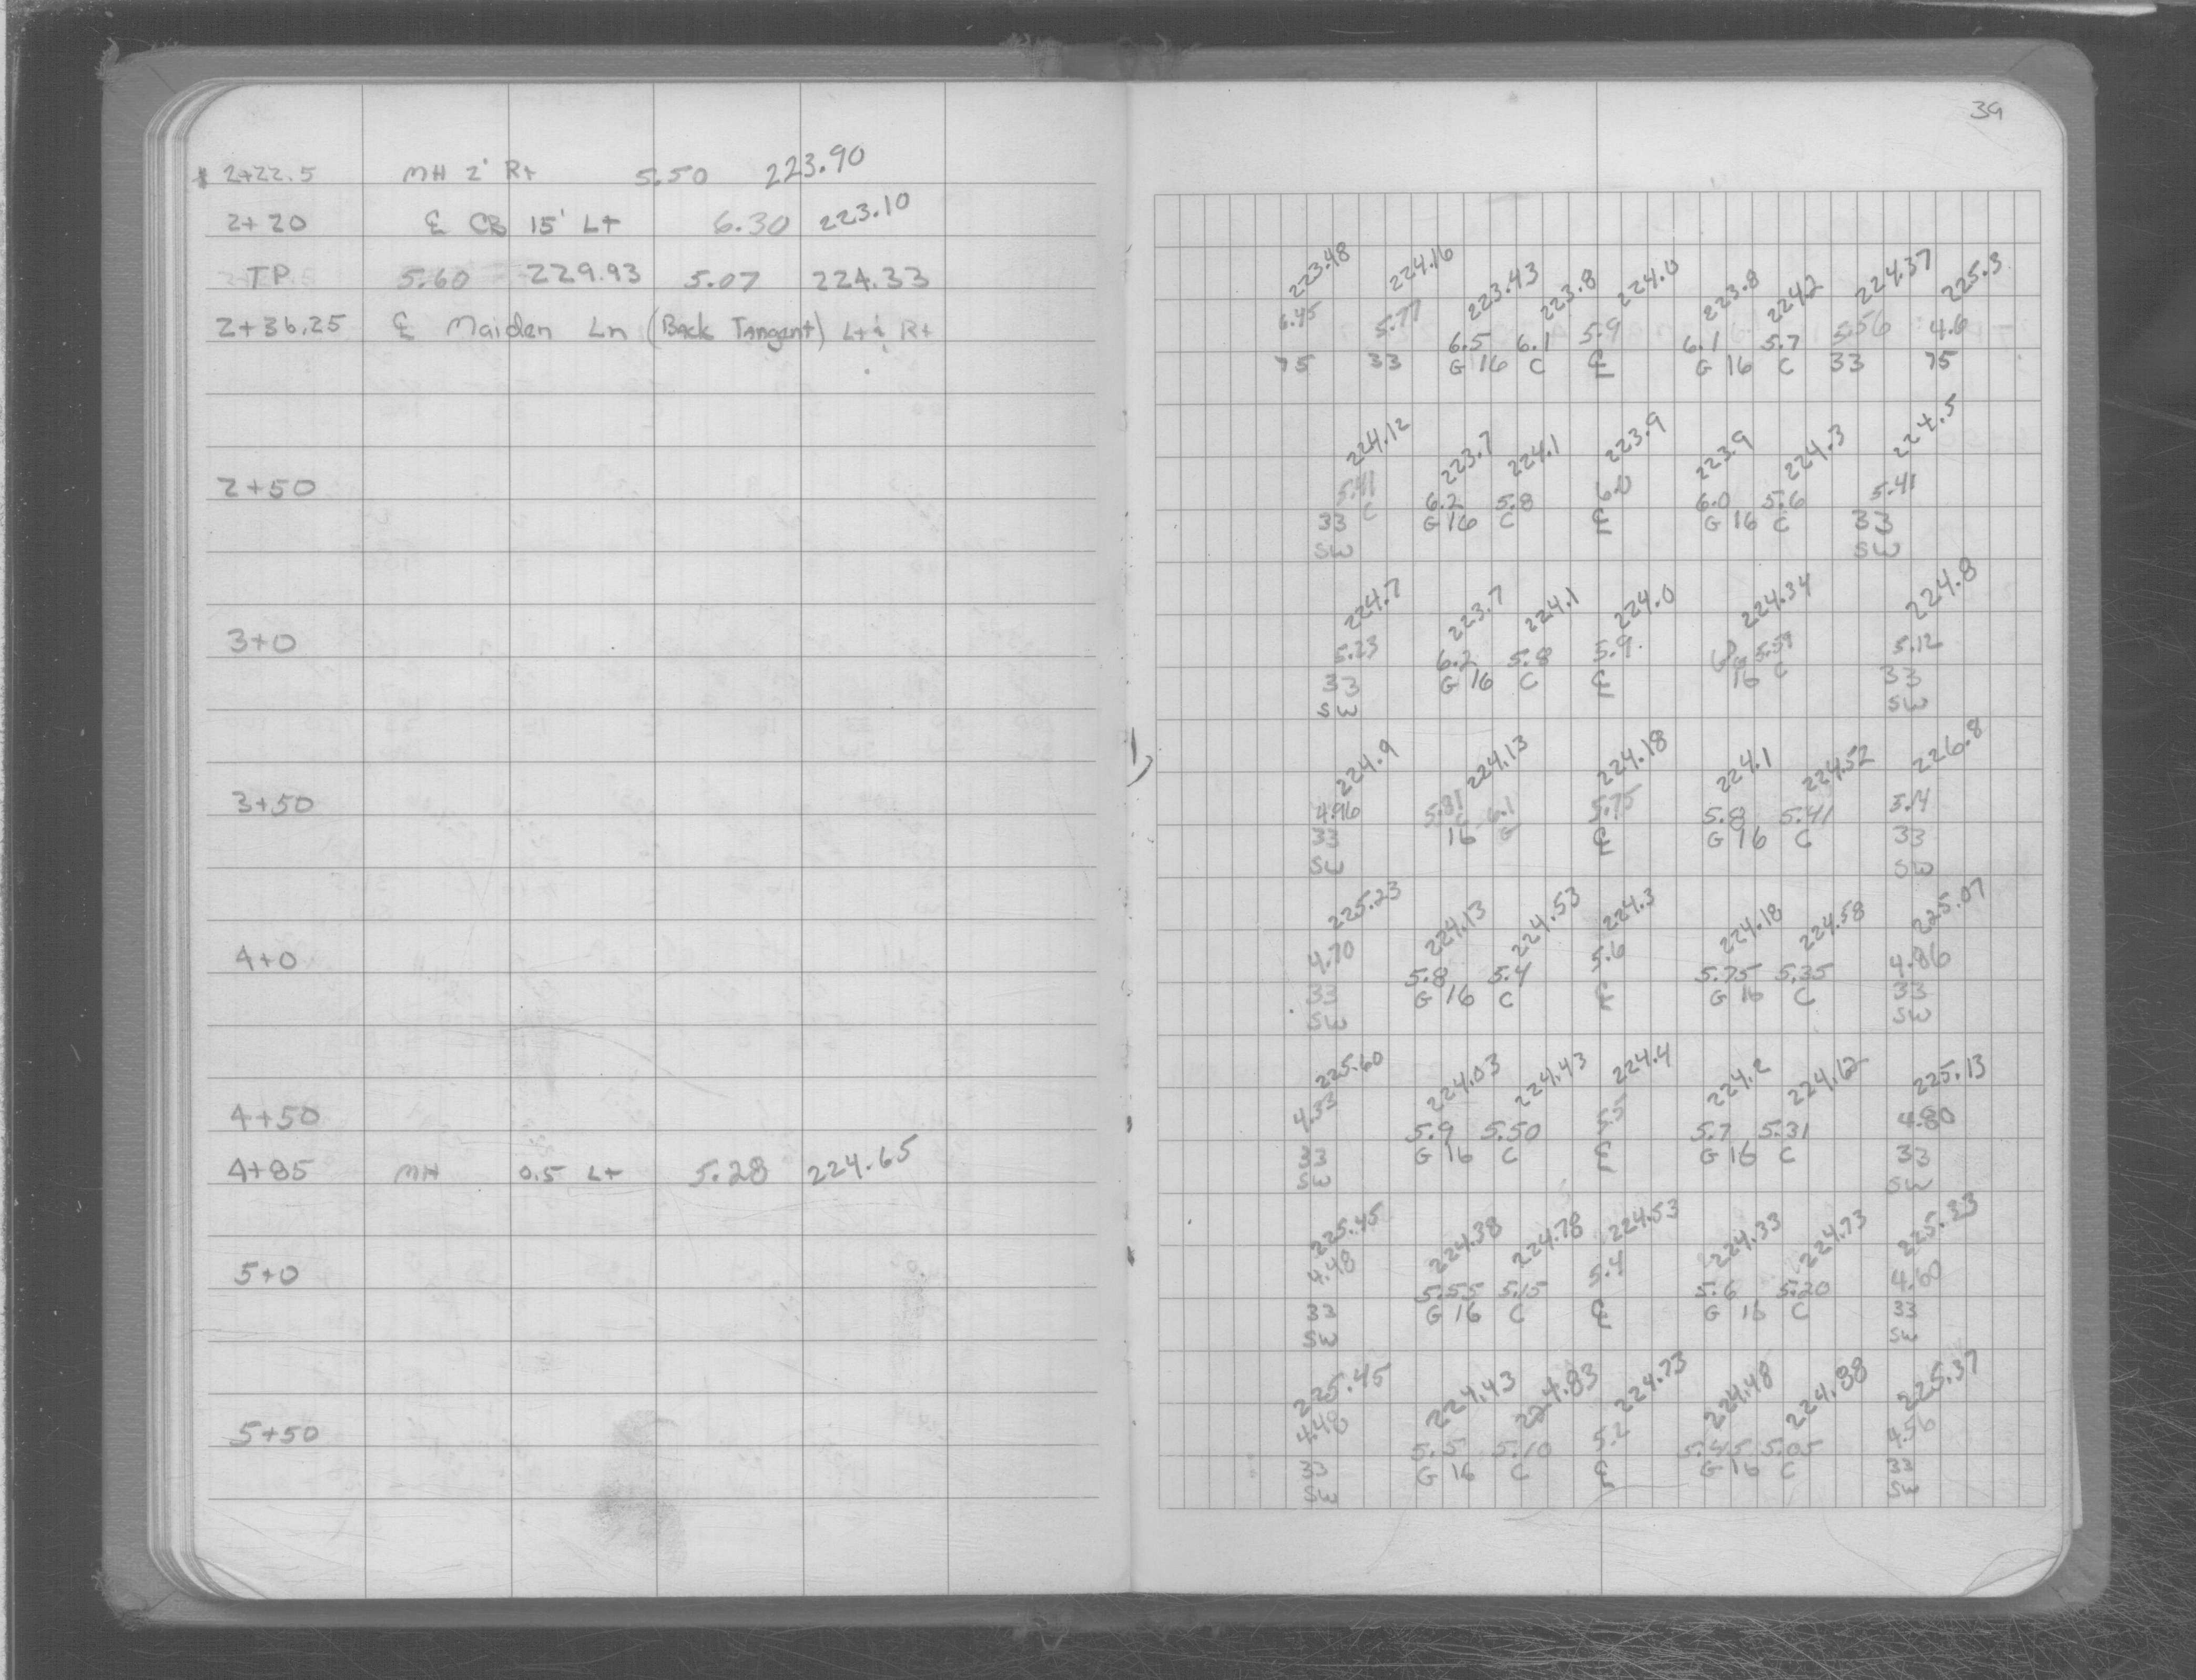 2+22.5 MH 2' Rt 5.50 223.90
2+20 ℄ CB 15' Lt 6.30 223.10
TP 5.60 229.93 5.07 224.33
2+36.25 ℄ Maiden Ln (Back Tangent) Lt & Rt
2+50
3+0
3+50
4+0
4+50
4+85 MH 0.5 Lt 5.28 224.65
5+0
5+50
39
223.48 224.16 223.43 223.8 224.0 223.8 224.2 224.37 225.3
6.45 5.77 6.5 6.1 5.9 6.1 5.7 5.56 4.6
75 33 G 16 C ℄ G 16 C 33 75
224.12 223.7 224.1 223.9 223.9 224.3 224.5
5.41 6.2 5.8 6.0 6.0 5.6 5.41
33 C G 16 C ℄ G 16 C 33
SW SW
224.7 223.7 224.1 224.0 224.34 224.8
5.23 6.2 5.8 5.9 5.59 5.12
33 G 16 C ℄ 16 C 33
SW SW
224.9 224.13 224.18 224.1 224.52 226.8
4.96 5.81 6.1 5.75 5.8 5.41 3.14
33 16 G ℄ G 16 C 33
SW SW
225.23 224.13 224.53 224.3 224.18 224.58 225.07
4.70 5.8 5.4 5.6 5.75 5.35 4.86
33 G 16 C ℄ G 16 C 33
SW SW
225.60 224.03 224.43 224.4 224.2 224.62 225.13
4.33 5.9 5.50 5.5 5.7 5.31 4.80
33 G 16 C ℄ G 16 C 33
SW SW
225.45 224.38 224.78 224.53 224.33 224.73 225.33
4.48 5.55 5.15 5.4 5.6 5.20 4.60
33 G 16 C ℄ G 16 C 33
SW SW
225.45 224.43 224.83 224.73 224.48 224.88 225.37
4.48 5.5 5.10 5.2 5.45 5.05 4.56
33 G 16 C ℄ G 16 C 33
SW SW